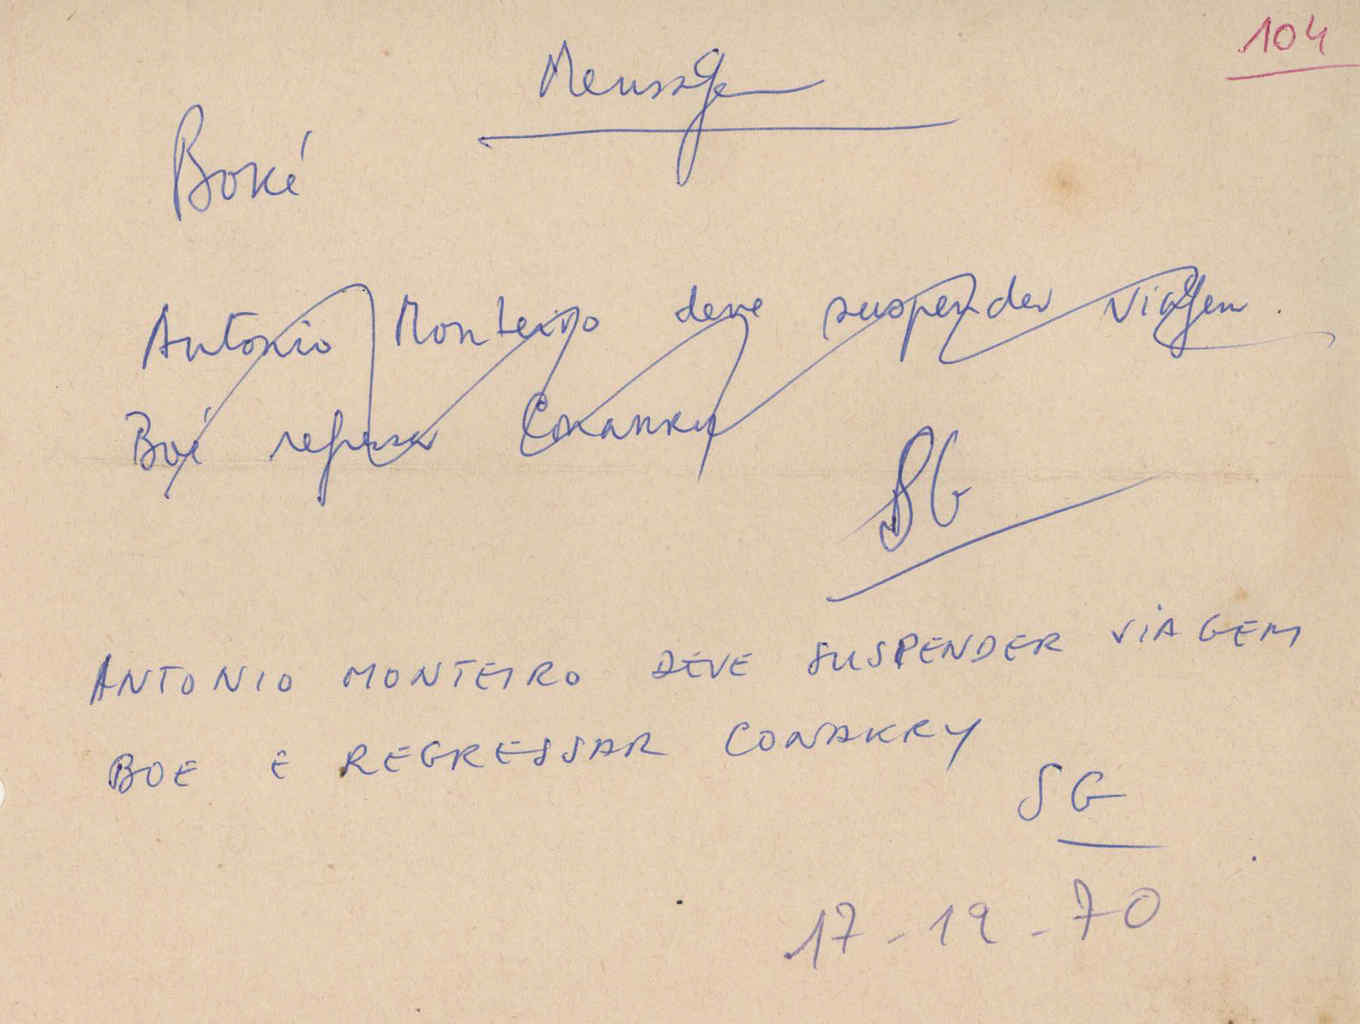 104
Mensagem
Boké
Antonio Monteiro deve suspender viagem.
Boé regressar Conakry
SG
ANTONIO MONTEIRO DEVE SUSPENDER VIAGEM
BOE E REGRESSAR CONAKRY
SG
17-12-70